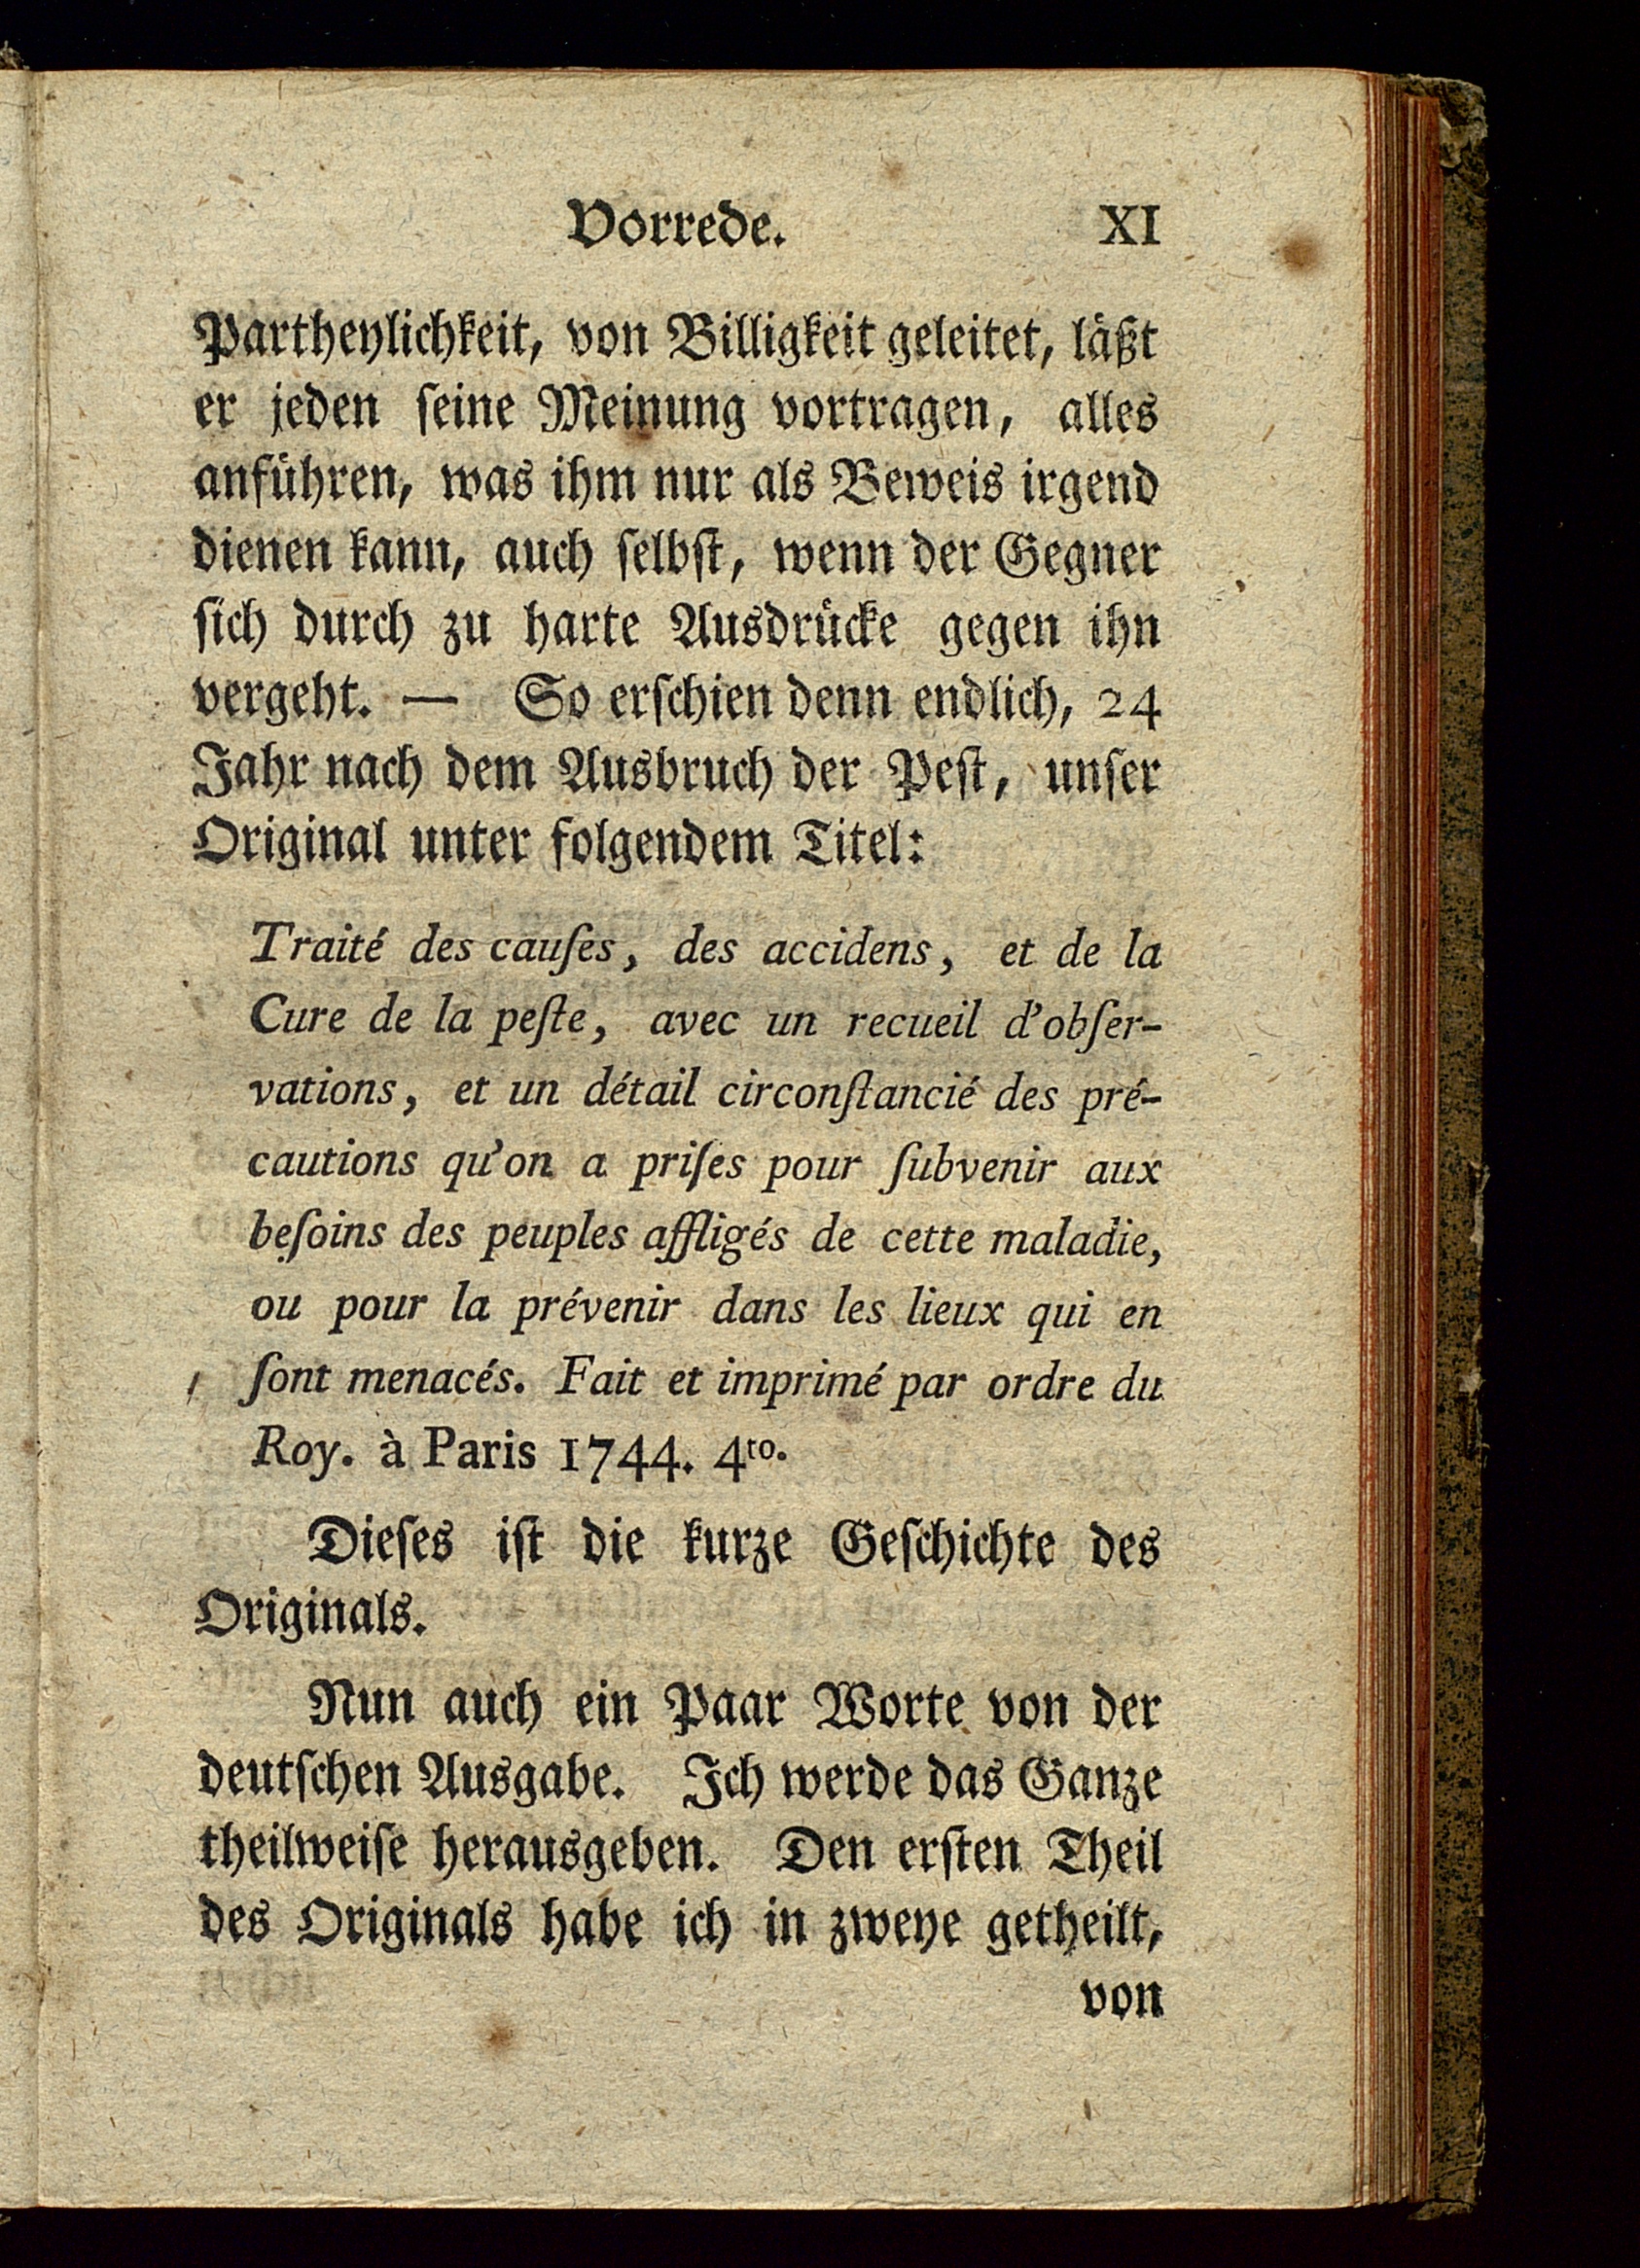 Vorrede. XI
Partheylichkeit, von Billigkeit geleitet, läßt
er jeden ſeine Meinung vortragen, alles
anführen, was ihm nur als Beweis irgend
dienen kann, auch ſelbſt, wenn der Gegner
ſich durch zu harte Ausdrücke gegen ihn
vergeht. — So erſchien denn endlich, 24
Jahr nach dem Ausbruch der Peſt, unſer
Original unter folgendem Titel:
Traité des cauſes, des accidens, et de la
Cure de la peſte, avec un recueil d'obſer-
vations, et un détail circonſtancié des pré-
cautions qu'on a priſes pour ſubvenir aux
beſoins des peuples affligés de cette maladie,
ou pour la prévenir dans les lieux qui en
ſont menacés. Fait et imprimé par ordre du
Roy. à Paris 1744. 4to.
Dieſes iſt die kurze Geſchichte des
Originals.
Nun auch ein Paar Worte von der
deutſchen Ausgabe. Ich werde das Ganze
theilweiſe herausgeben. Den erſten Theil
des Originals habe ich in zweye getheilt,
von